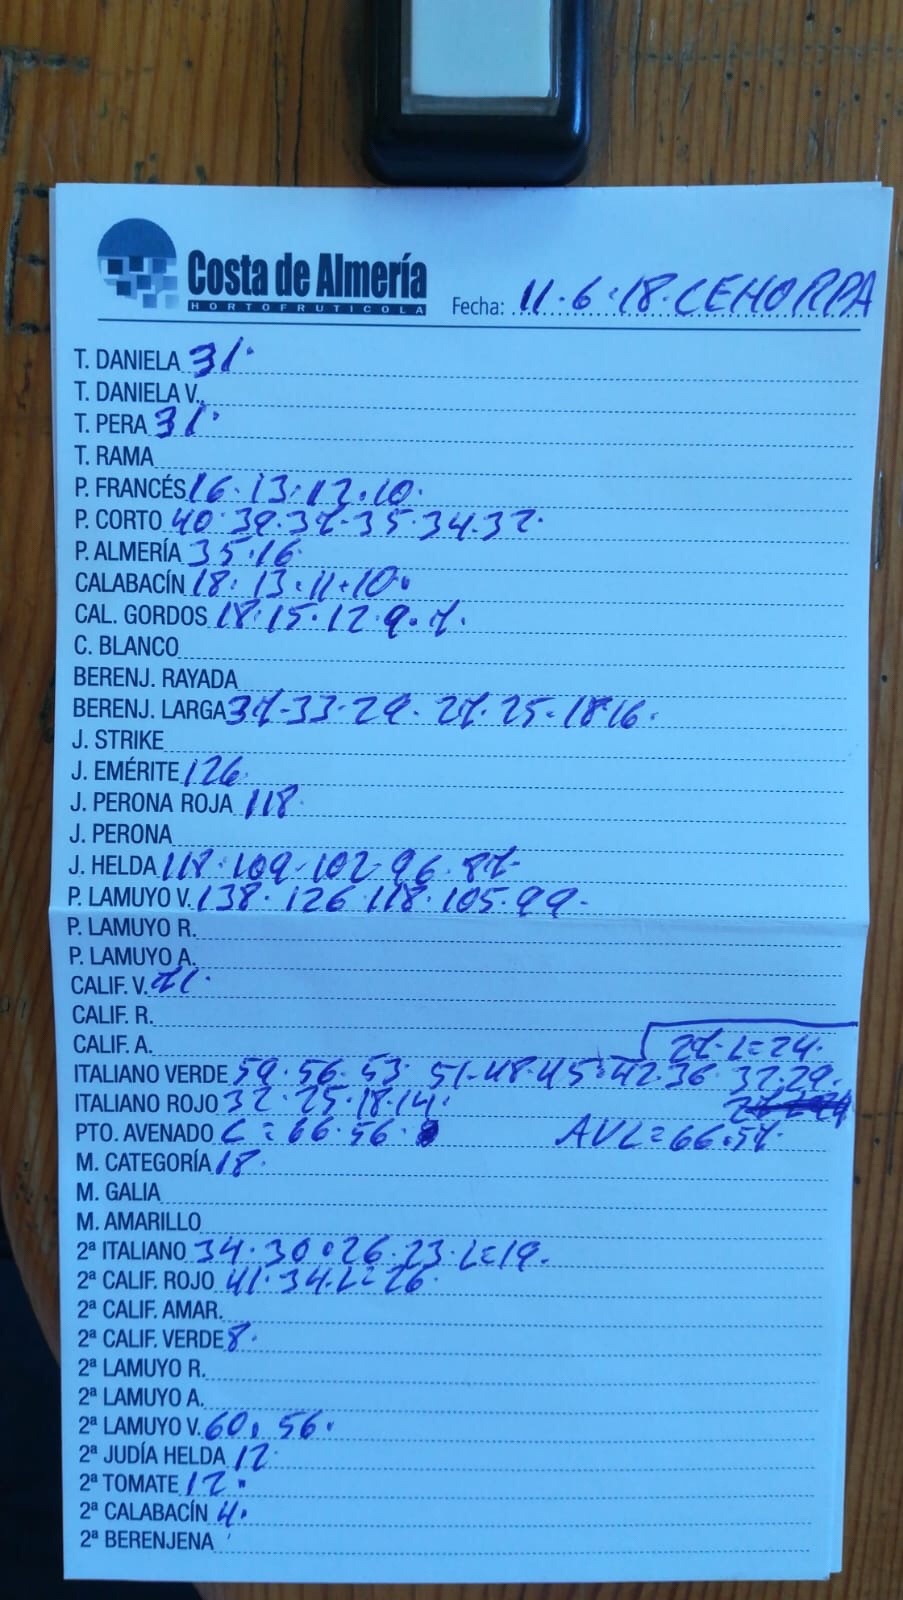 Costa de Almería
HORTOFRUTICOLA
Fecha: 11·6·18·CEHORPA
T. DANIELA 31·
T. DANIELA V.
T. PERA 31·
T. RAMA
P. FRANCÉS 16·13·12·10·
P. CORTO 40·39·37·35·34·32·
P. ALMERÍA 35·16
CALABACÍN 18·13·11·10·
CAL. GORDOS 18·15·12·9·7·
C. BLANCO
BERENJ. RAYADA
BERENJ. LARGA 37·33·29·27·25·18·16·
J. STRIKE
J. EMÉRITE 126
J. PERONA ROJA 118·
J. PERONA
J. HELDA 118·109·102·96·87·
P. LAMUYO V. 138·126·118·105·99·
P. LAMUYO R.
P. LAMUYO A.
CALIF. V. 71·
CALIF. R.
CALIF. A. 27·L=24·
ITALIANO VERDE 59·56·53·51·48·45·42·36·32·29·
ITALIANO ROJO 32·25·18·14·
PTO. AVENADO C=66·56· AVL=66·57·
M. CATEGORÍA 18·
M. GALIA
M. AMARILLO
2ª ITALIANO 34·30·26·23·L=19·
2ª CALIF. ROJO 41·34·L=26·
2ª CALIF. AMAR.
2ª CALIF. VERDE 8·
2ª LAMUYO R.
2ª LAMUYO A.
2ª LAMUYO V. 60·56·
2ª JUDÍA HELDA 12
2ª TOMATE 12·
2ª CALABACÍN 4·
2ª BERENJENA